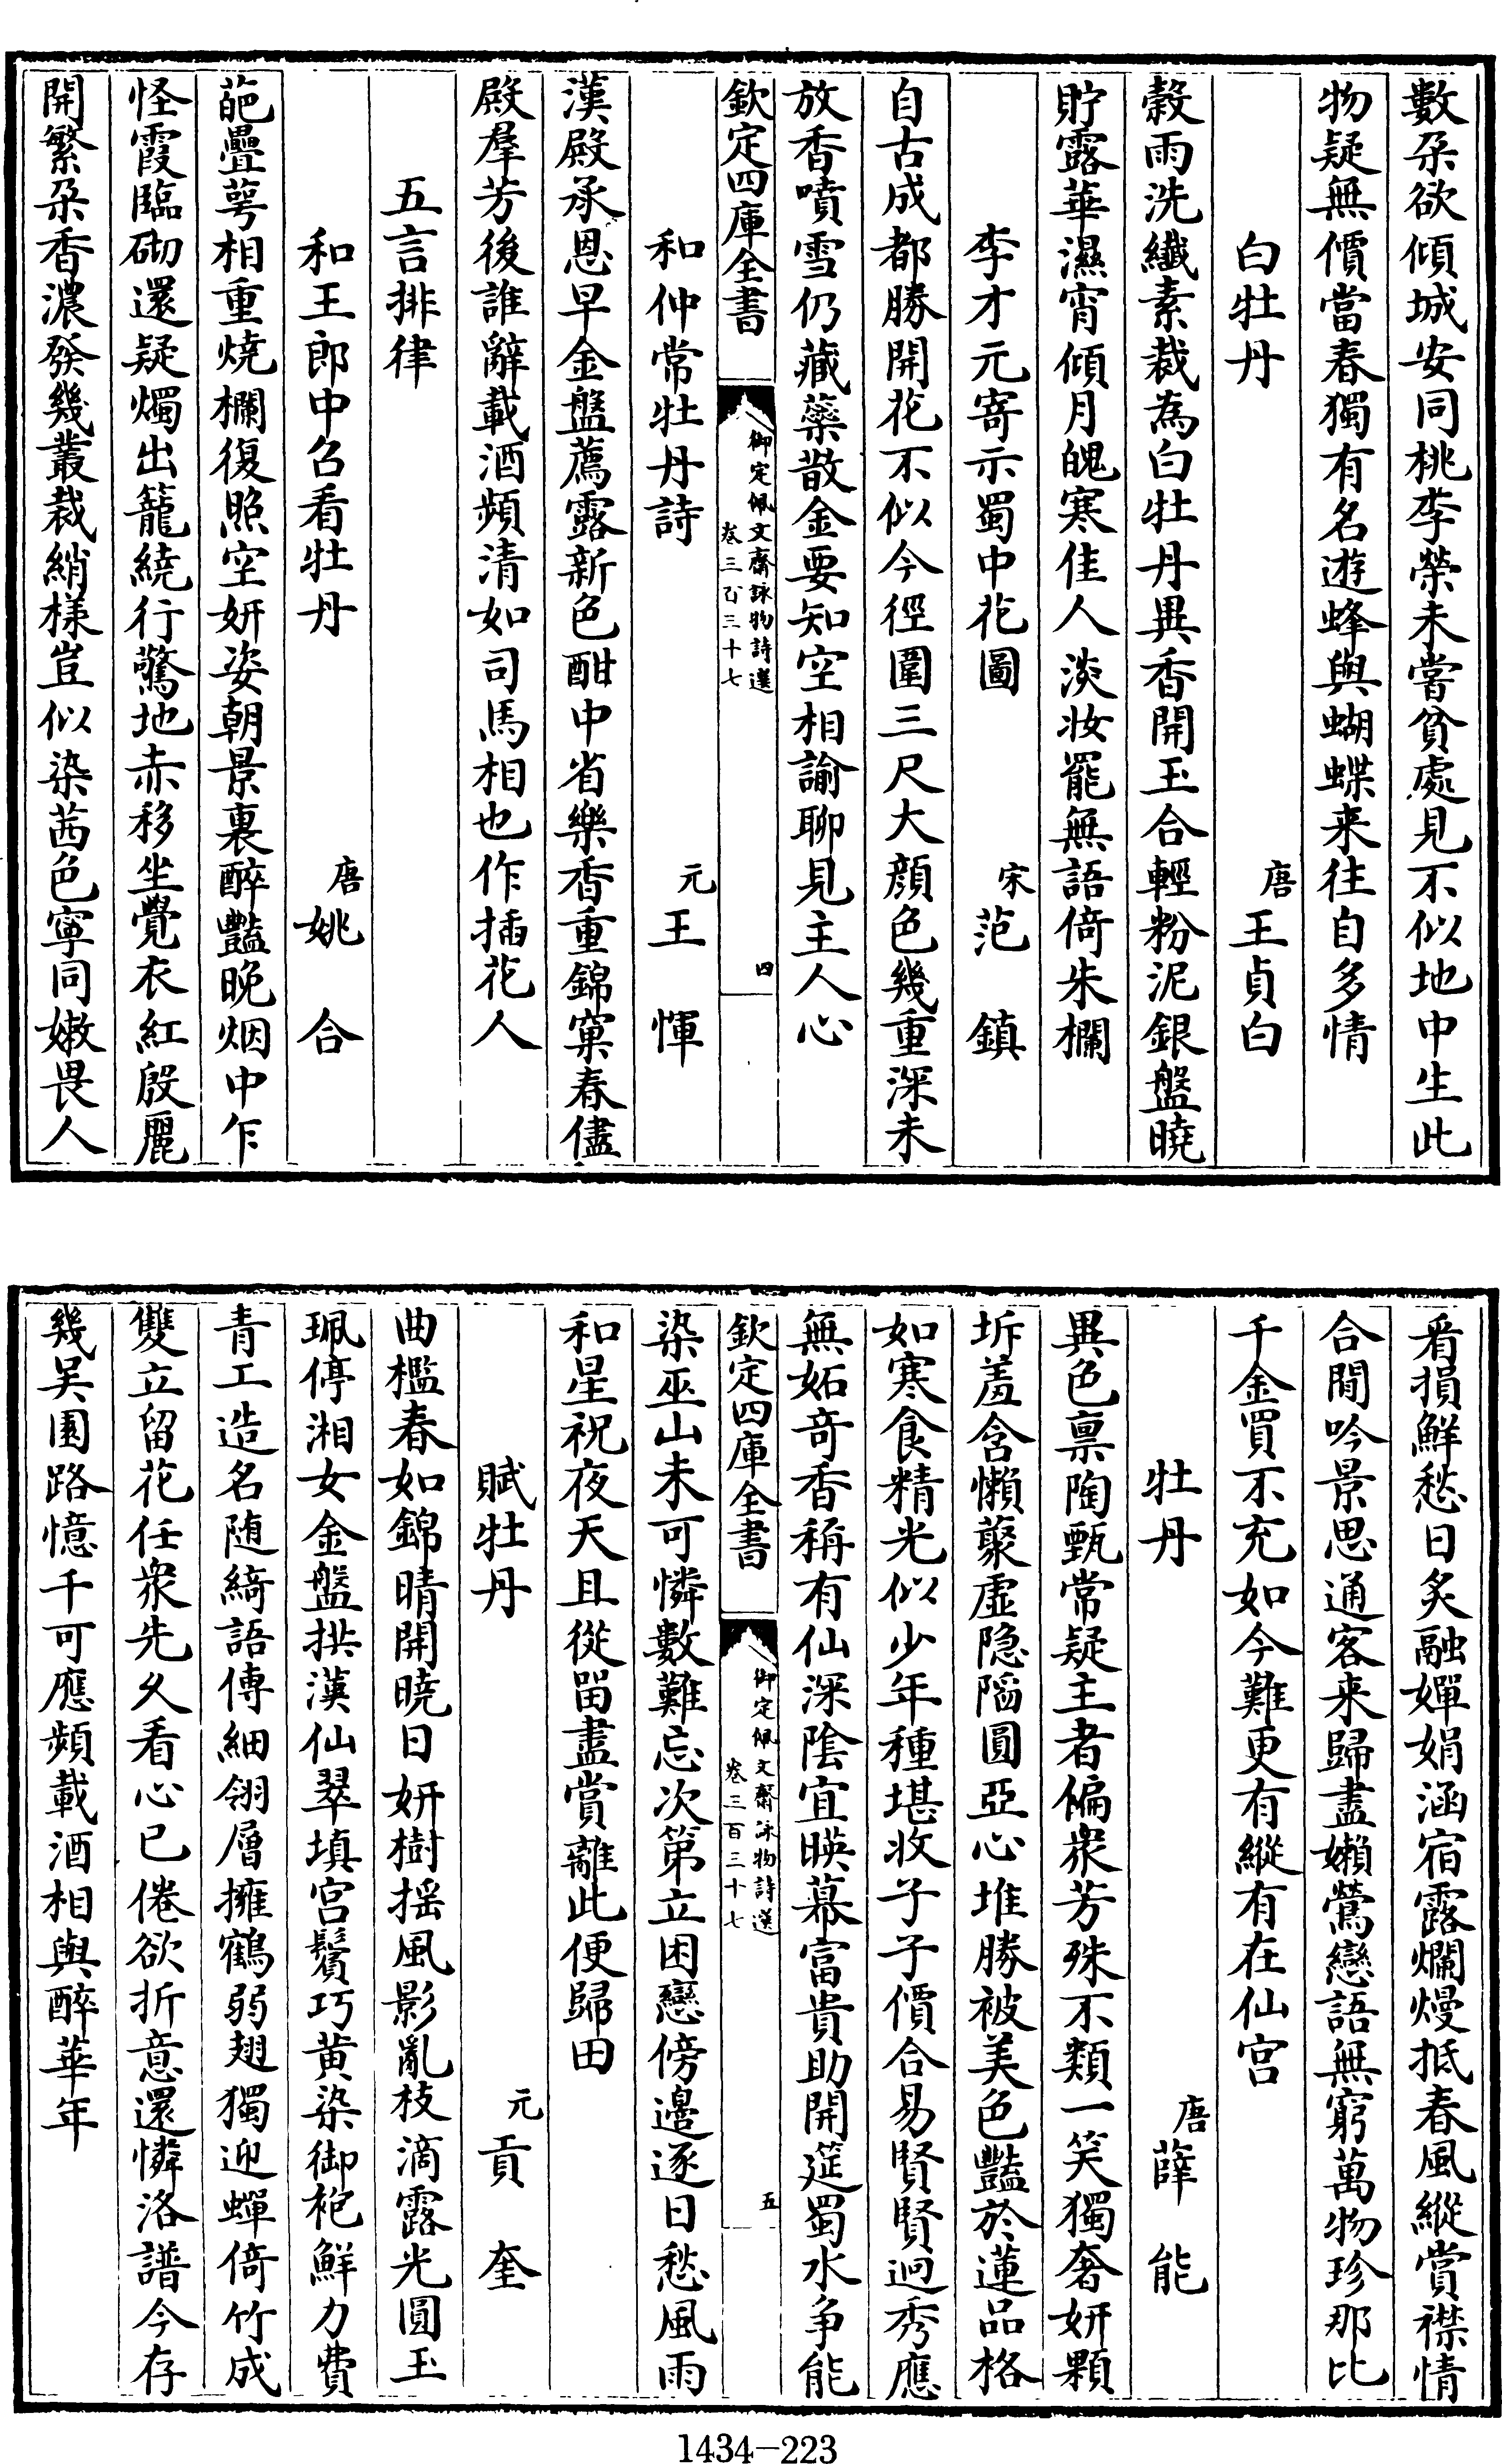 數朶欲傾城安同桃李榮未嘗貧處見不似地中生此
物疑無價當春獨有名遊蜂與蝴蝶来往自多情
白牡丹 唐王貞白
穀雨洗纖素裁為白牡丹異香開玉合輕粉泥銀盤曉
貯露華濕宵傾月魄寒佳人淡妝罷無語倚朱欄
李才元寄示蜀中花圖 宋范鎮
自古成都勝開花不似今徑圍三尺大顔色幾重深未
放香噴雪仍藏蘂散金要知空相諭聊見主人心
欽定四庫全書 御定佩文齋詠物詩選 卷三百三十七 四
和仲常牡丹詩 元王惲
漢殿承恩早金盤薦露新色酣中省樂香重錦窠春儘
殿羣芳後誰辭載酒頻清如司馬相也作插花人
五言排律
和王郎中召看牡丹 唐姚合
葩疊萼相重燒欄復照空妍姿朝景裏醉豔晚烟中乍
怪霞臨砌還疑燭出籠繞行驚地赤移坐覺衣紅殷麗
開繁朶香濃發幾叢裁綃様豈似染茜色寧同嫩畏人
看損鮮愁日炙融嬋娟涵宿露爛熳抵春風縱賞襟情
合閒吟景思通客来歸盡嬾鶯戀語無窮萬物珍那比
千金買不充如今難更有縱有在仙宫
牡丹 唐薛能
異色禀陶甄常疑主者偏衆芳殊不類一笑獨奢妍顆
坼羞含懶藂虚隐陷圓亞心堆勝被美色豔於蓮品格
如寒食精光似少年種堪收子子價合易賢賢迥秀應
無妬竒香稱有仙深陰宜映幕富貴助開筵蜀水争能
欽定四庫全書 御定佩文齋詠物詩選 卷三百三十七 五
染巫山未可憐數難忘次第立困戀傍邊逐日愁風雨
和星祝夜天且從留盡賞離此便歸田
賦牡丹 元貢奎
曲檻春如錦晴開曉日妍樹揺風影亂枝滴露光圓玉
珮停湘女金盤拱漢仙翠填宫鬢巧黄染御袍鮮力費
青工造名随綺語傳細翎層擁鶴弱翅獨迎蟬倚竹成
雙立留花任衆先久看心已倦欲折意還憐洛譜今存
幾吴園路憶千可應頻載酒相與醉華年
1434-223